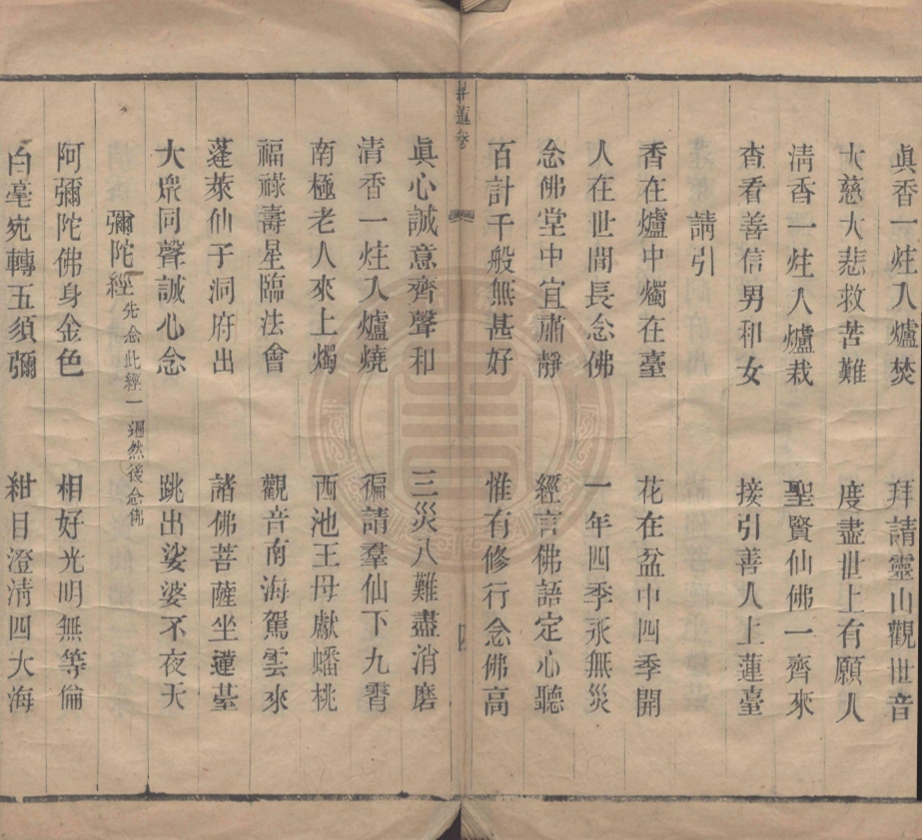 眞香一炷入爐焚　拜請靈山觀世音
大慈大悲救苦難　度盡世上有願人
淸香一炷入爐栽　聖賢仙佛一齊來
查看善信男和女　接引善人上蓮臺
請引
香在爐中燭在臺　花在盆中四季開
人在世間長念佛　一年四季永無災
念佛堂中宜肅靜　經言佛語定心聽
百計千般無甚好　惟有修行念佛高
四
眞心誠意齊聲和　三災八難盡消磨
清香一炷入爐燒　徧請羣仙下九霄
南極老人來上燭　西池王母獻蟠桃
福祿壽星臨法會　觀音南海駕雲來
蓬萊仙子洞府出　諸佛菩薩坐蓮臺
大衆同聲誠心念　跳出娑婆不夜天
彌陀經先念此經一遍然後念佛
阿彌陀佛身金色　相好光明無等倫
白毫宛轉五須彌　紺目澄淸四大海